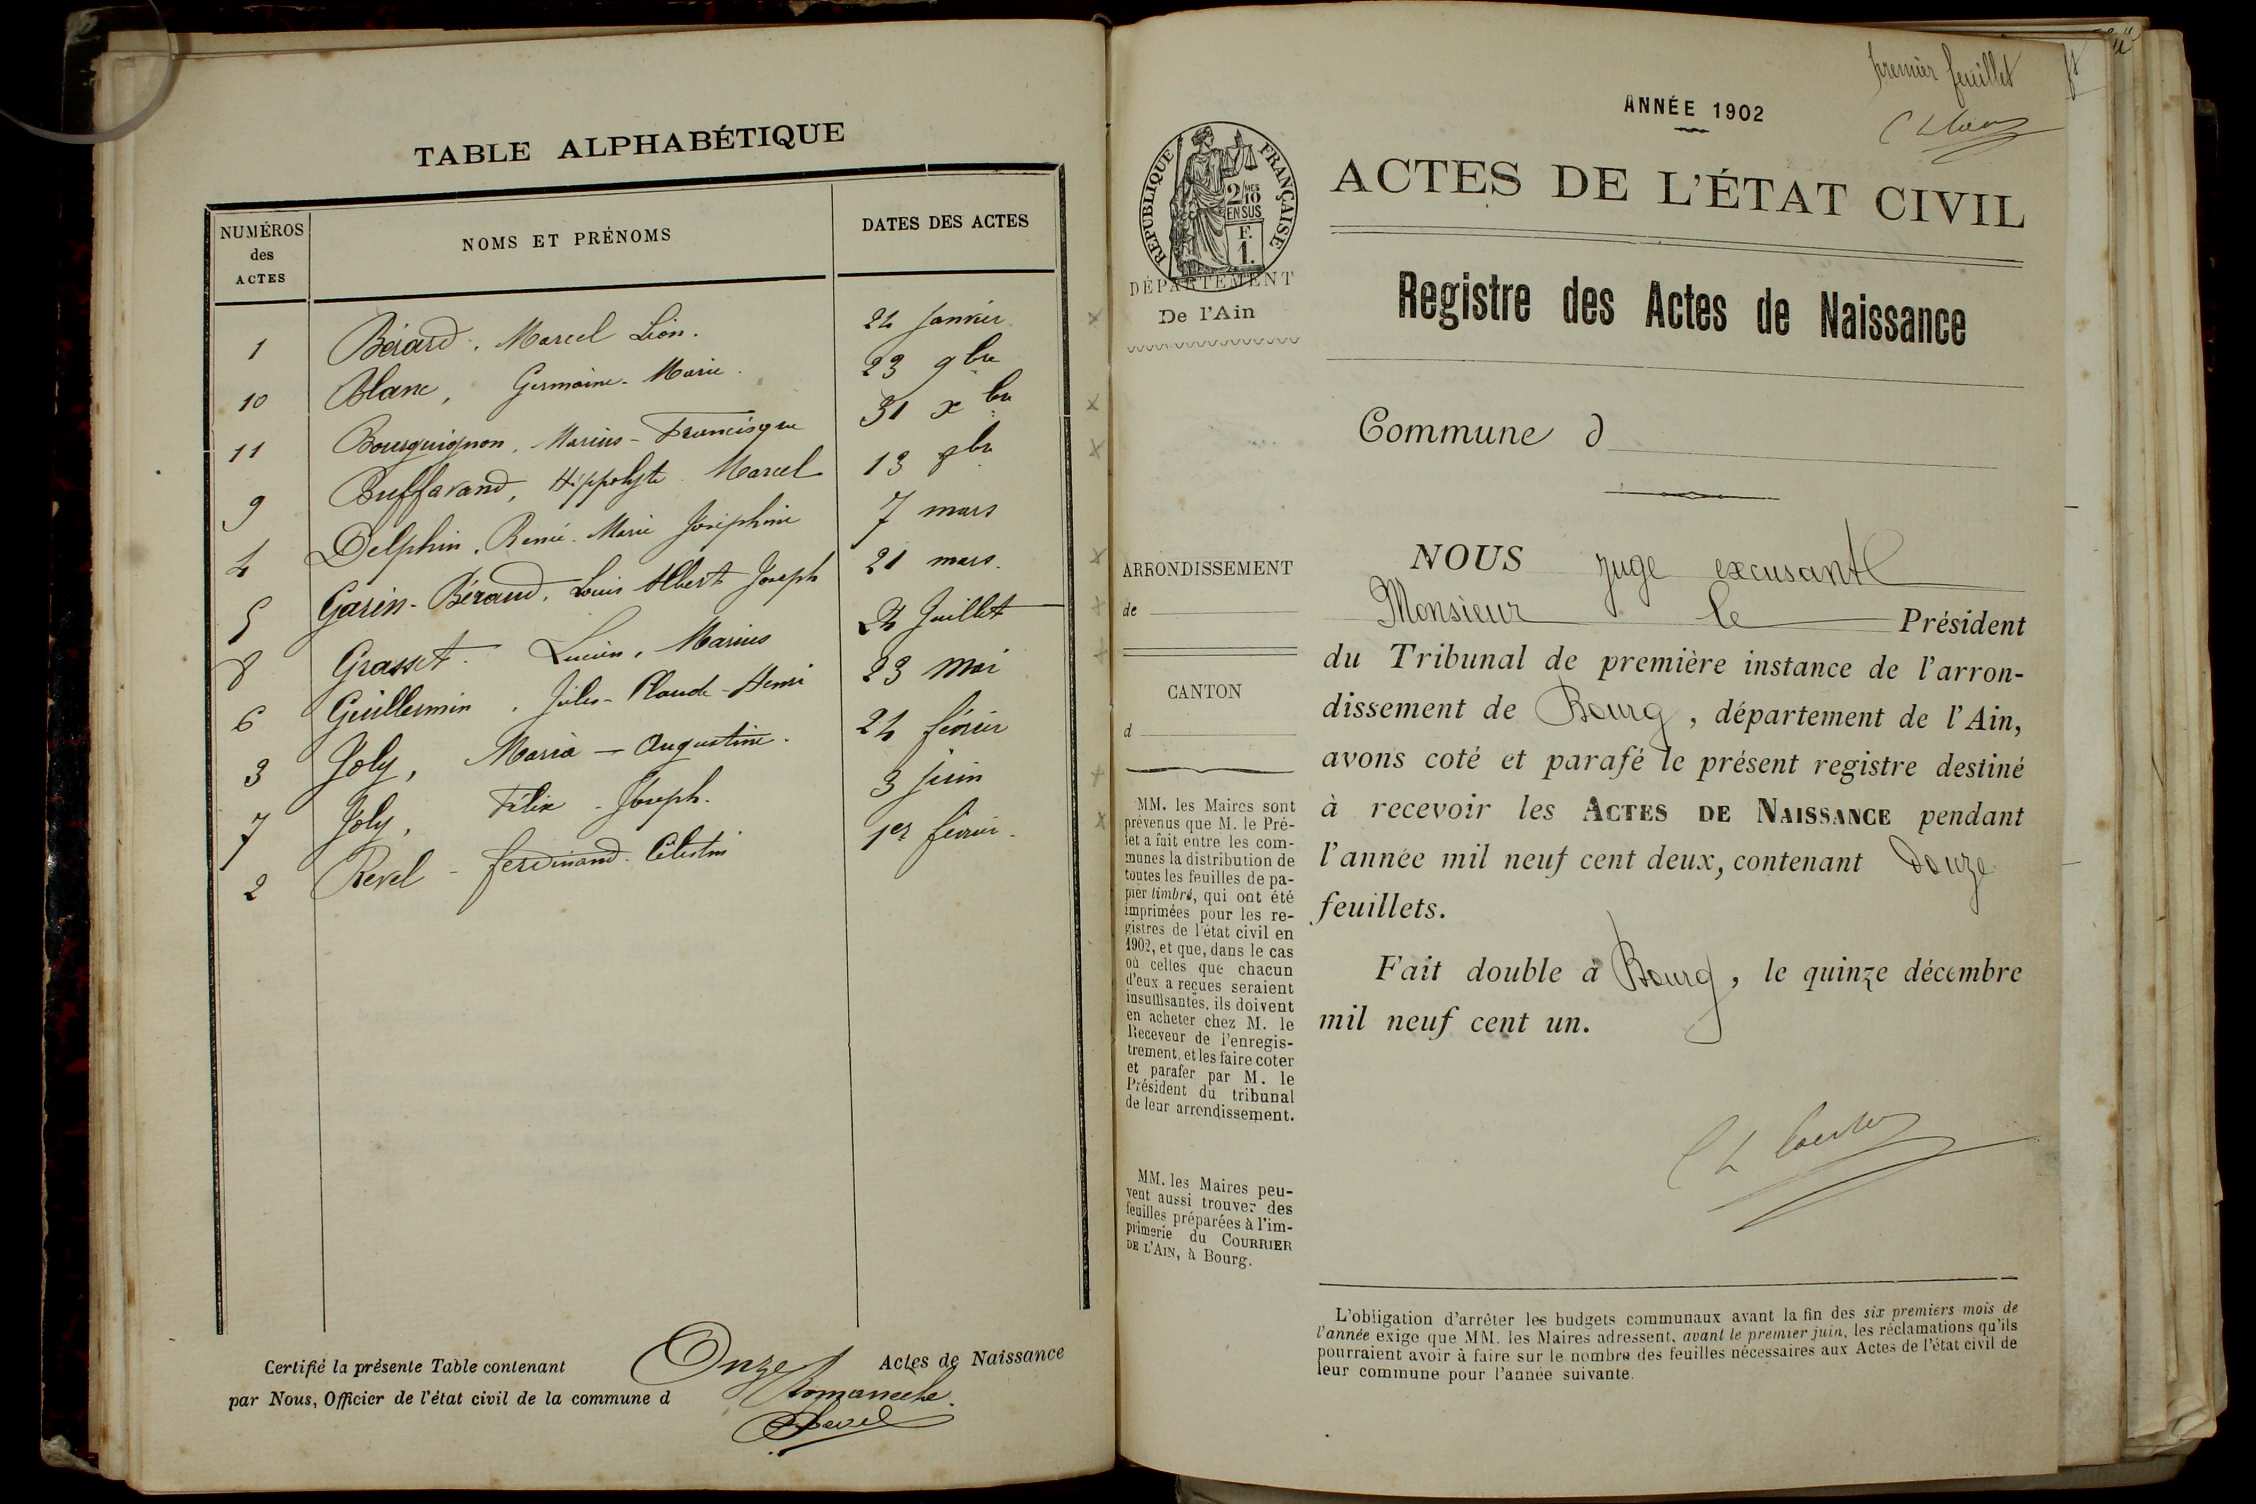 TABLE ALPHABÉTIQUE
NUMÉROS
des
ACTES
NOMS ET PRÉNOMS
DATES DES ACTES
1 Bérard, Marcel Léon. 24 Janvier
10 Blanc, Germaine-Marie. 23 9bre
11 Bourguignon, Marius-Francisque 31 xbre
9 Buffavand, Hippolyte Marcel 13 8bre
4 Delphin, Renée-Marie Joséphine 7 mars
5 Garin-Béraud, Louis Albert Joseph 21 mars.
8 Grasset. Lucien, Marius 24 Juillet
6 Guillermin, Jules-Claude-Henri 23 Mai
3 Joly, Maria-Augustine. 24 février
7 Joly, Félix-Joseph. 3 Juin
2 Revel-Ferdinand Célestin 1er février.
Certifié la présente Table contenant Onze Actes de Naissance
par Nous, Officier de l'état civil de la commune d Romanèche.
Revel
premier feuillet
ANNÉE 1902
RÉPUBLIQUE FRANÇAISE
2/10MES
EN SUS
F.
1.
ACTES DE L'ÉTAT CIVIL
DÉPARTEMENT
De l'Ain
Registre des Actes de Naissance
Commune d
ARRONDISSEMENT
de
CANTON
d
MM. les Maires sont
prévenus que M. le Pré-
fet a fait entre les com-
munes la distribution de
toutes les feuilles de pa-
pier timbré, qui ont été
imprimées pour les re-
gistres de l'état civil en
1902, et que, dans le cas
où celles que chacun
d'eux a reçues seraient
insuffisantes, ils doivent
en acheter chez M. le
Receveur de l'enregis-
trement, et les faire coter
et parafer par M. le
Président du tribunal
de leur arrondissement.
MM. les Maires peu-
vent aussi trouver des
feuilles préparées à l'im-
primerie du COURRIER
DE L'AIN, à Bourg.
NOUS juge excusant
Monsieur le Président
du Tribunal de première instance de l'arron-
dissement de Bourg, département de l'Ain,
avons coté et parafé le présent registre destiné
à recevoir les ACTES DE NAISSANCE pendant
l'année mil neuf cent deux, contenant Douze
feuillets.
Fait double à Bourg, le quinze décembre
mil neuf cent un.
L'obligation d'arrêter les budgets communaux avant la fin des six premiers mois de
l'année exige que MM. les Maires adressent, avant le premier juin, les réclamations qu'ils
pourraient avoir à faire sur le nombre des feuilles nécessaires aux Actes de l'état civil de
leur commune pour l'année suivante.